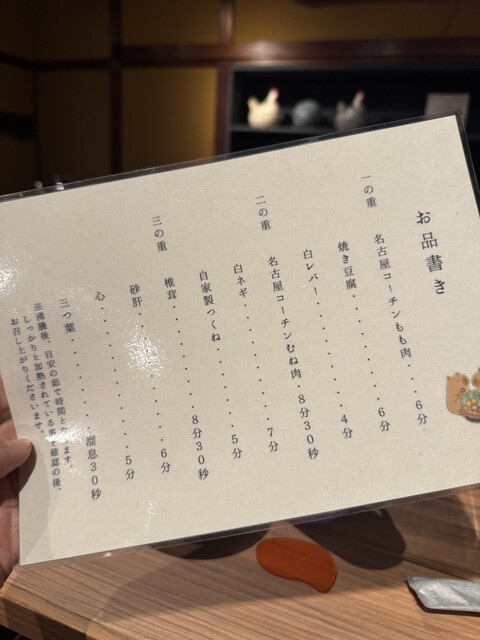 お品書き
一の重
名古屋コーチンもも肉・・・・6分
焼き豆腐・・・・・・・・・6分
白レバー・・・・・・・・・4分
二の重
名古屋コーチンむね肉 8分30秒
白ネギ・・・・・・・・・・7分
自家製つくね・・・・・・・5分
三の重
椎茸・・・・・・・・8分30秒
砂肝・・・・・・・・・・・6分
心・・・・・・・・・・・・5分
三つ葉・・・・・・・溜息30秒
※沸騰後、目安の茹で時間となります。
しっかりと加熱されている事を確認の後、
お召し上がりくださいませ。